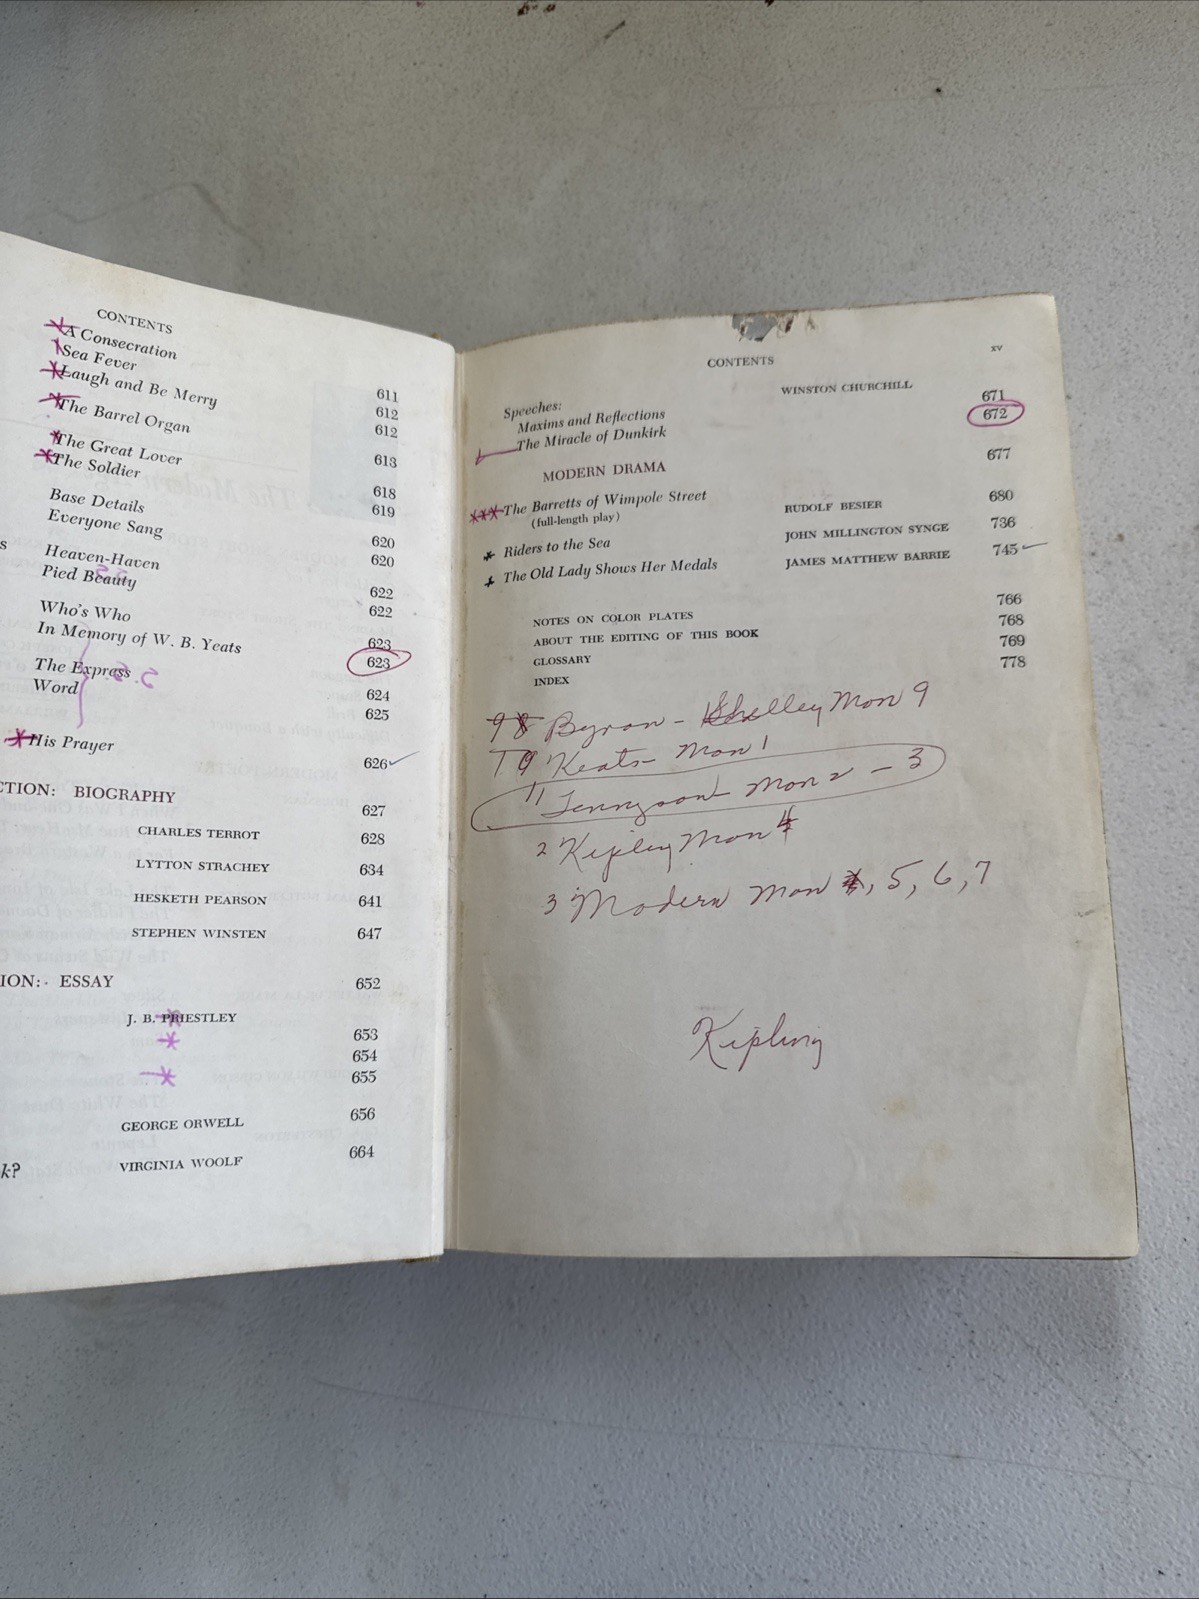 CONTENTS
A Consecration
Sea Fever 611
Laugh and Be Merry 612
The Barrel Organ 612
The Great Lover 613
The Soldier
618
Base Details 619
Everyone Sang 620
s Heaven-Haven 620
Pied Beauty 622
Who's Who 622
In Memory of W. B. Yeats 623
The Express 623
Word 624
625
His Prayer 626
CTION: BIOGRAPHY 627
CHARLES TERROT 628
LYTTON STRACHEY 634
HESKETH PEARSON 641
STEPHEN WINSTEN 647
ION: ESSAY 652
J. B. PRIESTLEY
653
654
655
GEORGE ORWELL 656
k? VIRGINIA WOOLF 664
CONTENTS xv
WINSTON CHURCHILL
Speeches: 671
Maxims and Reflections 672
The Miracle of Dunkirk
MODERN DRAMA 677
The Barretts of Wimpole Street RUDOLF BESIER 680
(full-length play)
Riders to the Sea JOHN MILLINGTON SYNGE 736
The Old Lady Shows Her Medals JAMES MATTHEW BARRIE 745
NOTES ON COLOR PLATES 766
ABOUT THE EDITING OF THIS BOOK 768
GLOSSARY 769
INDEX 778
Byron - Shelley Mon 9
Keats Mon 1
11 Tennyson Mon 2 - 3
2 Kipling Mon 4
3 Modern Mon , 5, 6, 7
Kipling